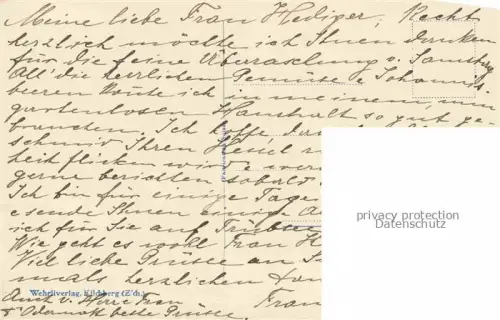 Meine liebe Frau Heiliger, Recht
herzlich möchte ich Ihnen danken
für die feine Überraschung v. Samstag
All' die herrlichen Gemüse & Johannis-
beeren konnte ich in meinem, nun
gartenlosen Haushalt so gut ge-
brauchen. Ich hoffe, dass
schmid Ihren
heit flicken wird &
gerne berichten sobald
Ich bin für einige Tage
& sende Ihnen einige
ich für Sie auf
Wie geht es wohl Frau H
Viel liebe Grüsse an
mals herzlichen Dan
Wehrliverlag, Kilchberg (Zch.)
Auch v. Herr & Frau Frau
& Odermatt beste Grüsse.
privacy protection
Datenschutz